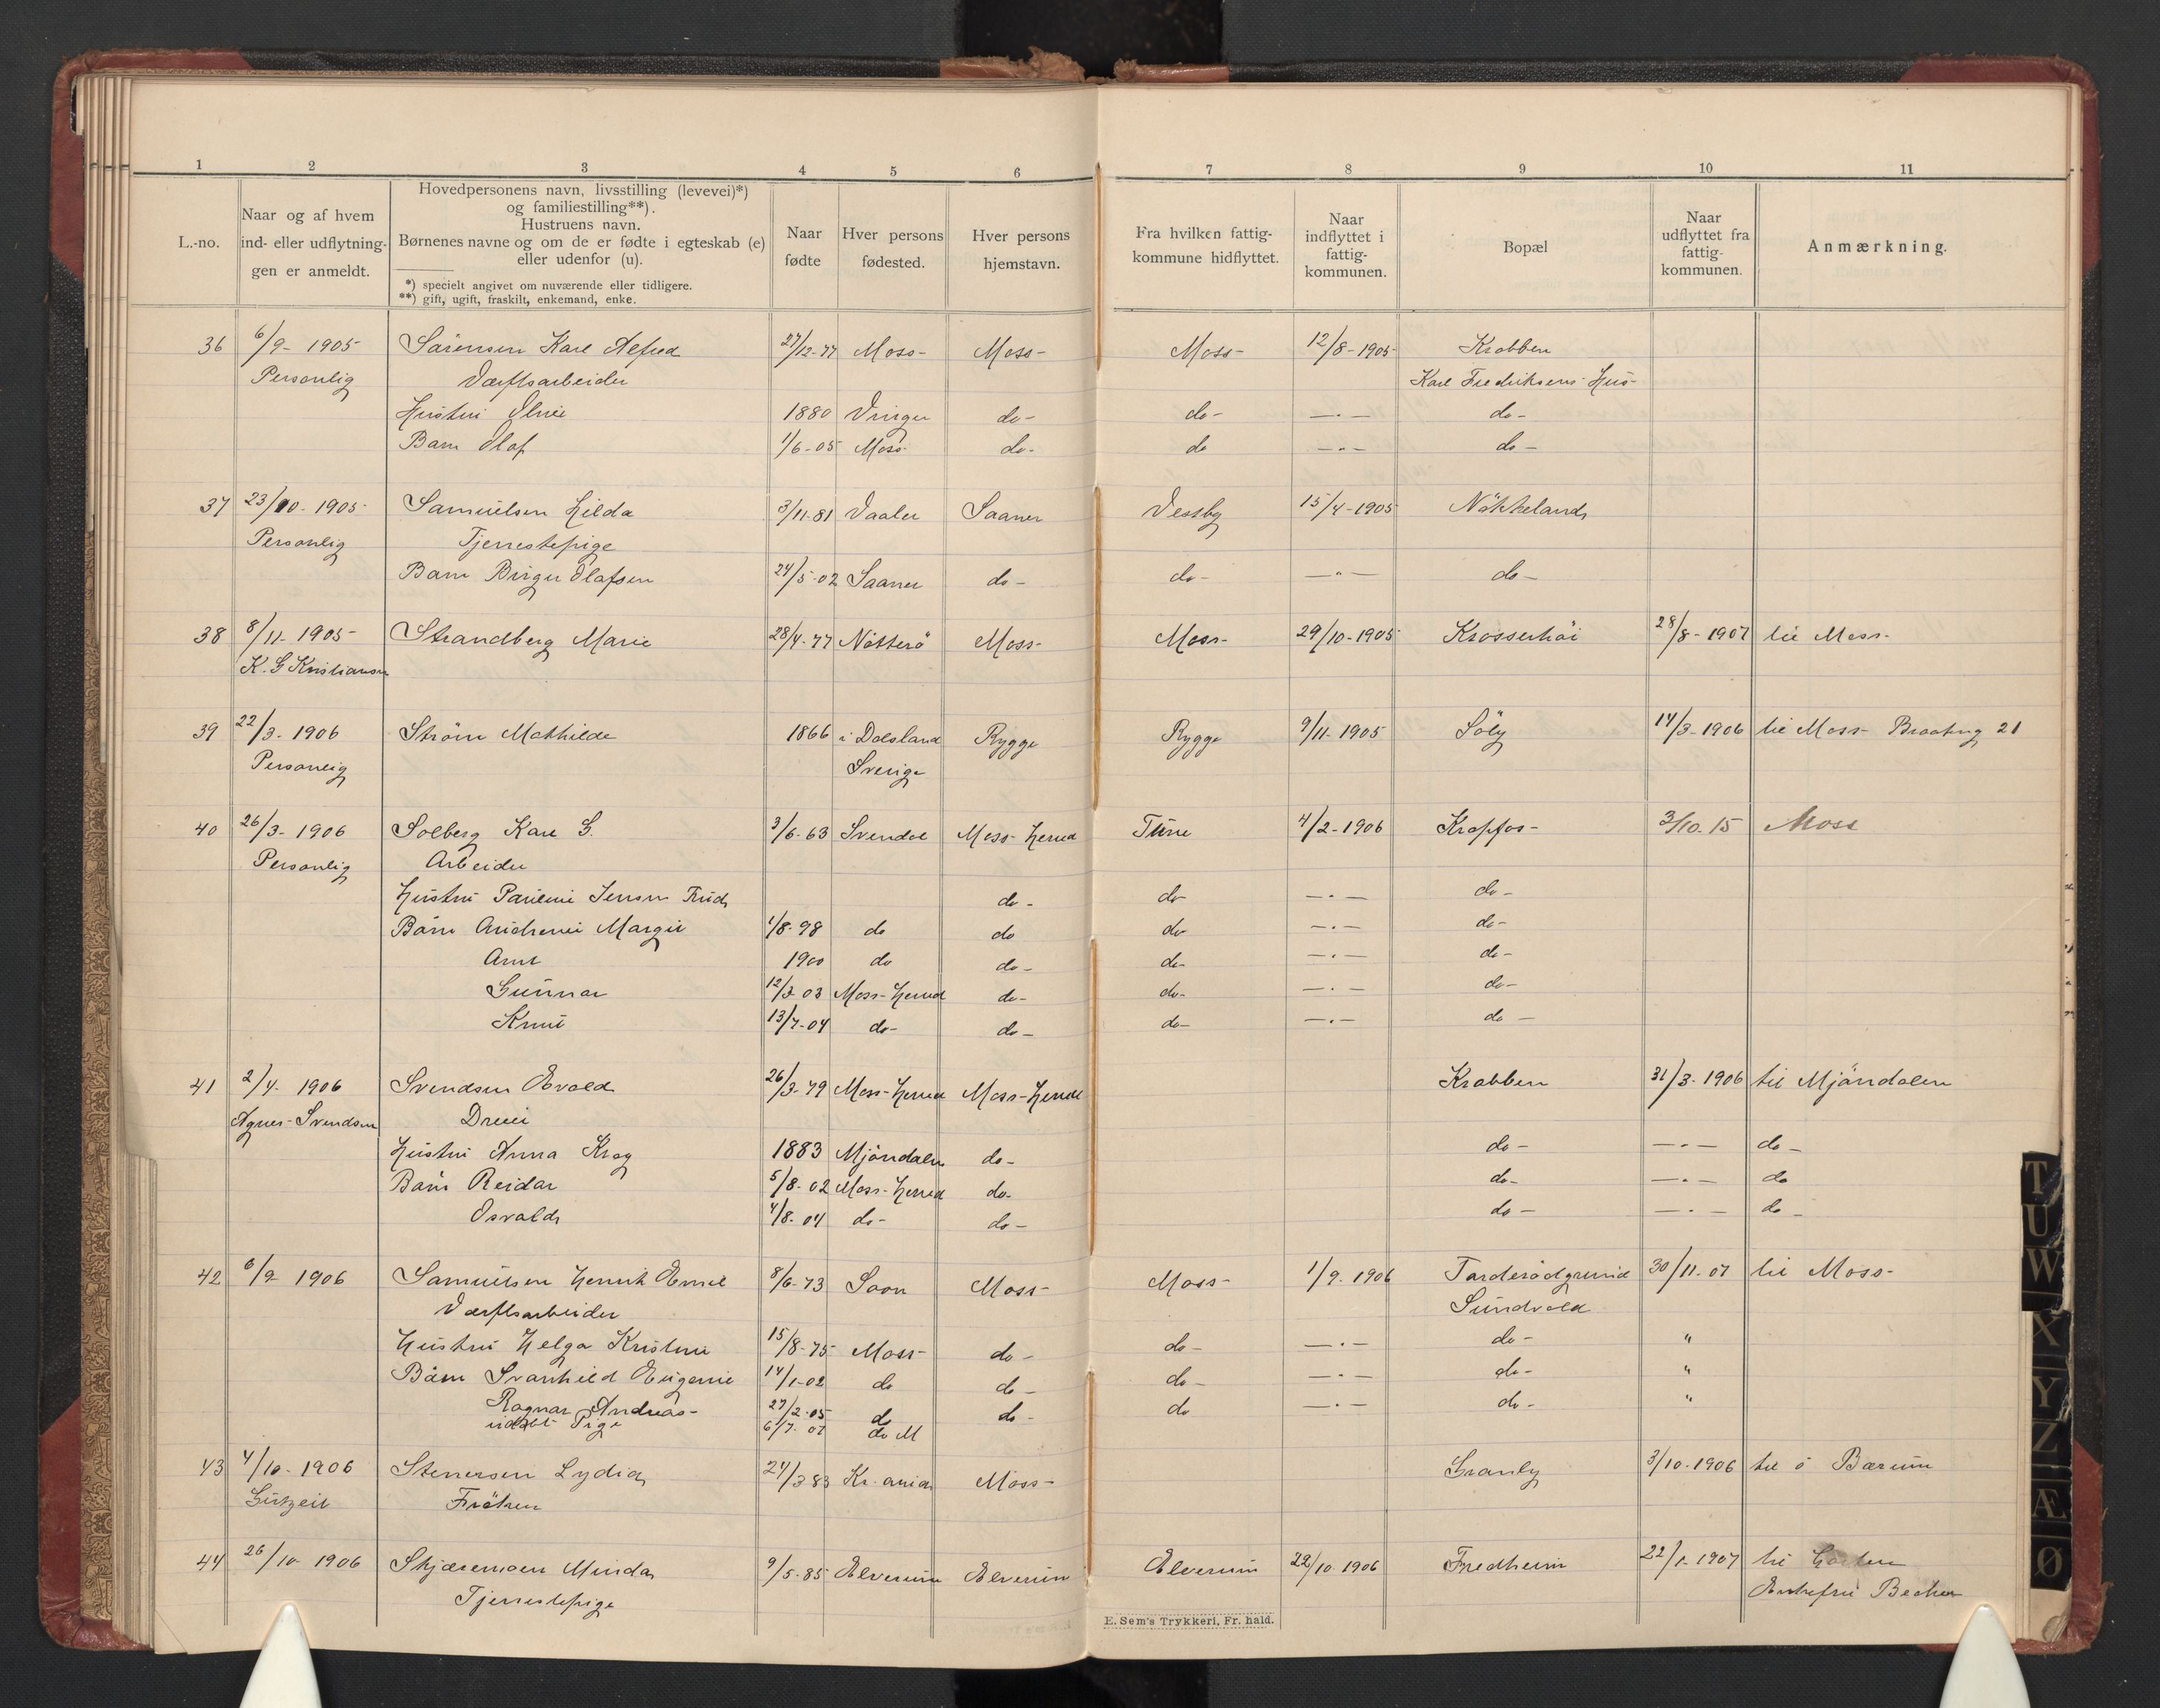 1 2 3 4 5 6 7 8 9 10 11
L.-no.
Naar og af hvem
ind- eller udflytnin-
gen er anmeldt.
Hovedpersonens navn, livsstilling (levevei)*)
og familiestilling**).
Hustruens navn.
Børnenes navne og om de er fødte i egteskab (e)
eller udenfor (u).
*) specielt angivet om nuværende eller tidligere.
**) gift, ugift, fraskilt, enkemand, enke.
Naar
fødte
Hver persons
fødested.
Hver persons
hjemstavn.
Fra hvilken fattig-
kommune hidflyttet.
Naar
indflyttet i
fattig-
kommunen.
Bopæl
Naar
udflyttet fra
fattig-
kommunen.
Anmærkning.
36 6/9- 1905 Sørensen Karl Alfred 27/12-77 Moss- Moss- Moss- 12/8-1905 Krabben
Personlig Værftsarbeider Karl Fredriksens Hus-
Hustru Olivie 1880 Vinger do- do- —"— do-
Barn Olaf 1/6-05 Moss- do- do —"— do-
37 23/10-1905 Samuelsen Hilda 3/11-81 Vaaler Saaner Vestby 15/4-1905 Nökkeland
Personlig Tjenestepige
Barn Birger Olafsen 24/5-02 Saaner do- do- —"— do-
38 8/11-1905- Strandberg Marie 28/4-77 Nötterö Moss- Moss- 29/10-1905 Krosserhöi 28/8-1907 til Moss-
K. G Kristiansen
39 22/3-1906 Ström Mathilde 1866 i Dalsland Rygge Rygge 9/11-1905 Söly 14/3-1906 til Moss- Braatng 21
Personlig Sverige
40 26/3-1906 Solberg Karl G. 3/6-63 Svendal Moss-Herred Tune 4/2-1906 Krapfos- 3/10.15 Moss
Personlig Arbeider
Hustru Pauline Jensen do- do- —"— do-
Barn Margit 1/8-98 do do do- —"— do-
Arnt 1900 do do- do- —"— do-
Gunnar 12/3 03 Moss-Herred do- do- —"— do-
Knut 13/7-04 do- do- do- —"— do-
41 2/4-1906 Svendsen Edvald 26/3-79 Moss-Herred Moss-Herred Krabben 31/3-1906 til Mjöndalen
Agnes Svendsen
Hustru Anna Krog 1883 Mjöndalen do- do- —"— do-
Barn Reidar 5/8-02 Moss-Herred do- do- —"— do
Osvald 4/8-04 do- do- do- —"— do-
42 6/9 1906 Samuelsen Henrik Emil 8/6-73 Soon Moss- Moss- 1/9.1906 Tarderödgrund 30/11-07 til Moss-
Værftsarbeider Sundvold
Hustru Helga Kristine 15/8-75 Moss- do- do- —"— do- "
Barn Svanhild Eugenie 14/1-02 do do- do- —"— do- "
Ragnar Andreas- 27/2-05 do do- do —"— do- "
udöbt Pige 6/7-07 do M
43 4/10-1906 Stenersen Lydia 24/3 83 Kr.ania Moss- Granly 3/10-1906 til ö Bærum
Gutzeit Fröken
44 26/10-1906 Skjæremoen Minda 9/5-85 Elverum Elverum Elverum 22/10 1906 Fredheim 22/1-1907 til
Tjenestepige Enkefru Becker
E. Sem's Trykkeri, Fr. hald.
T
U
W
X
Y
Z
Æ
Ø